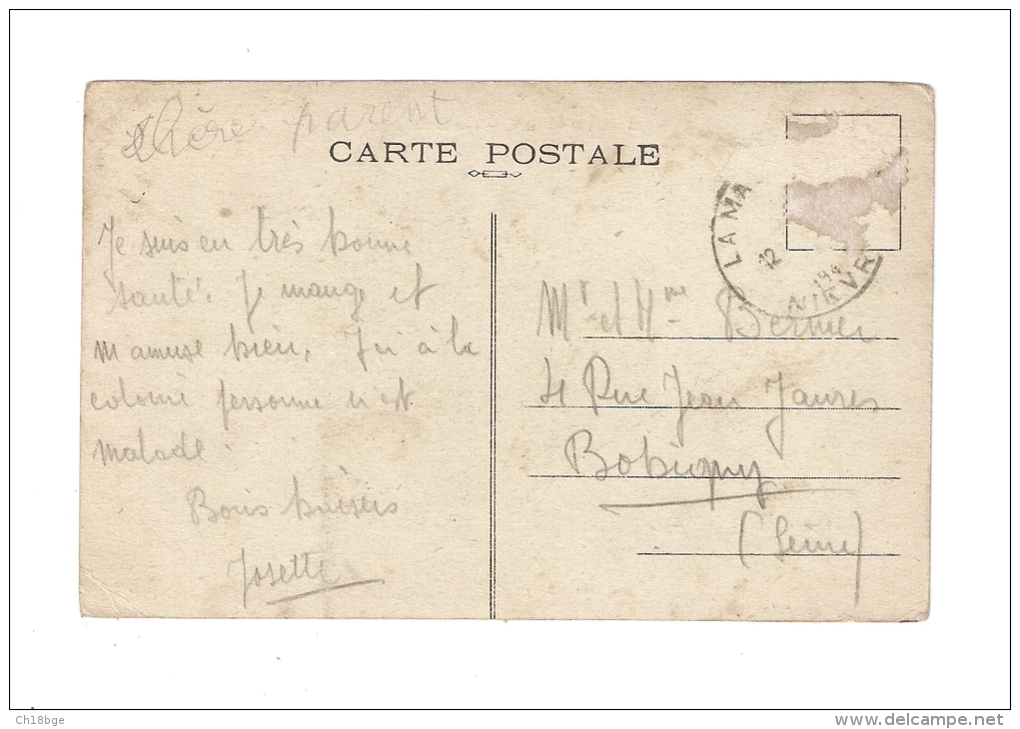 Chère parent
CARTE POSTALE
Je suis en très bonne
santé. Je mange et
m amuse bien. Ici à la
colonie personne n'est
malade.
Bons baisers
Josette
LA MA
12
194
NIÈVRE
Mr et Mme Bernier
4 Rue Jean Jaures
Bobigny
(Seine)
Ch18bge
www.delcampe.net